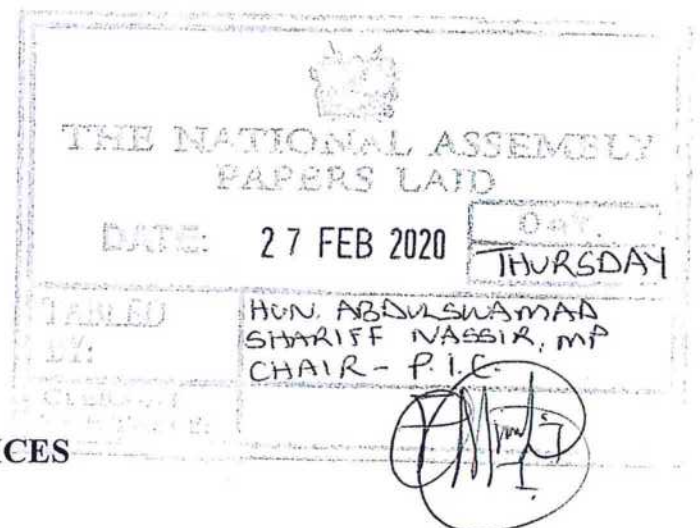 THE NATIONAL ASSEMBLY
PAPERS LAID
DATE: 27 FEB 2020
DAY.
THURSDAY
TABLED
BY:
HON. ABDULSWAMAD
SHARIFF NASSIR, MP
CHAIR - P.I.C.
ICES